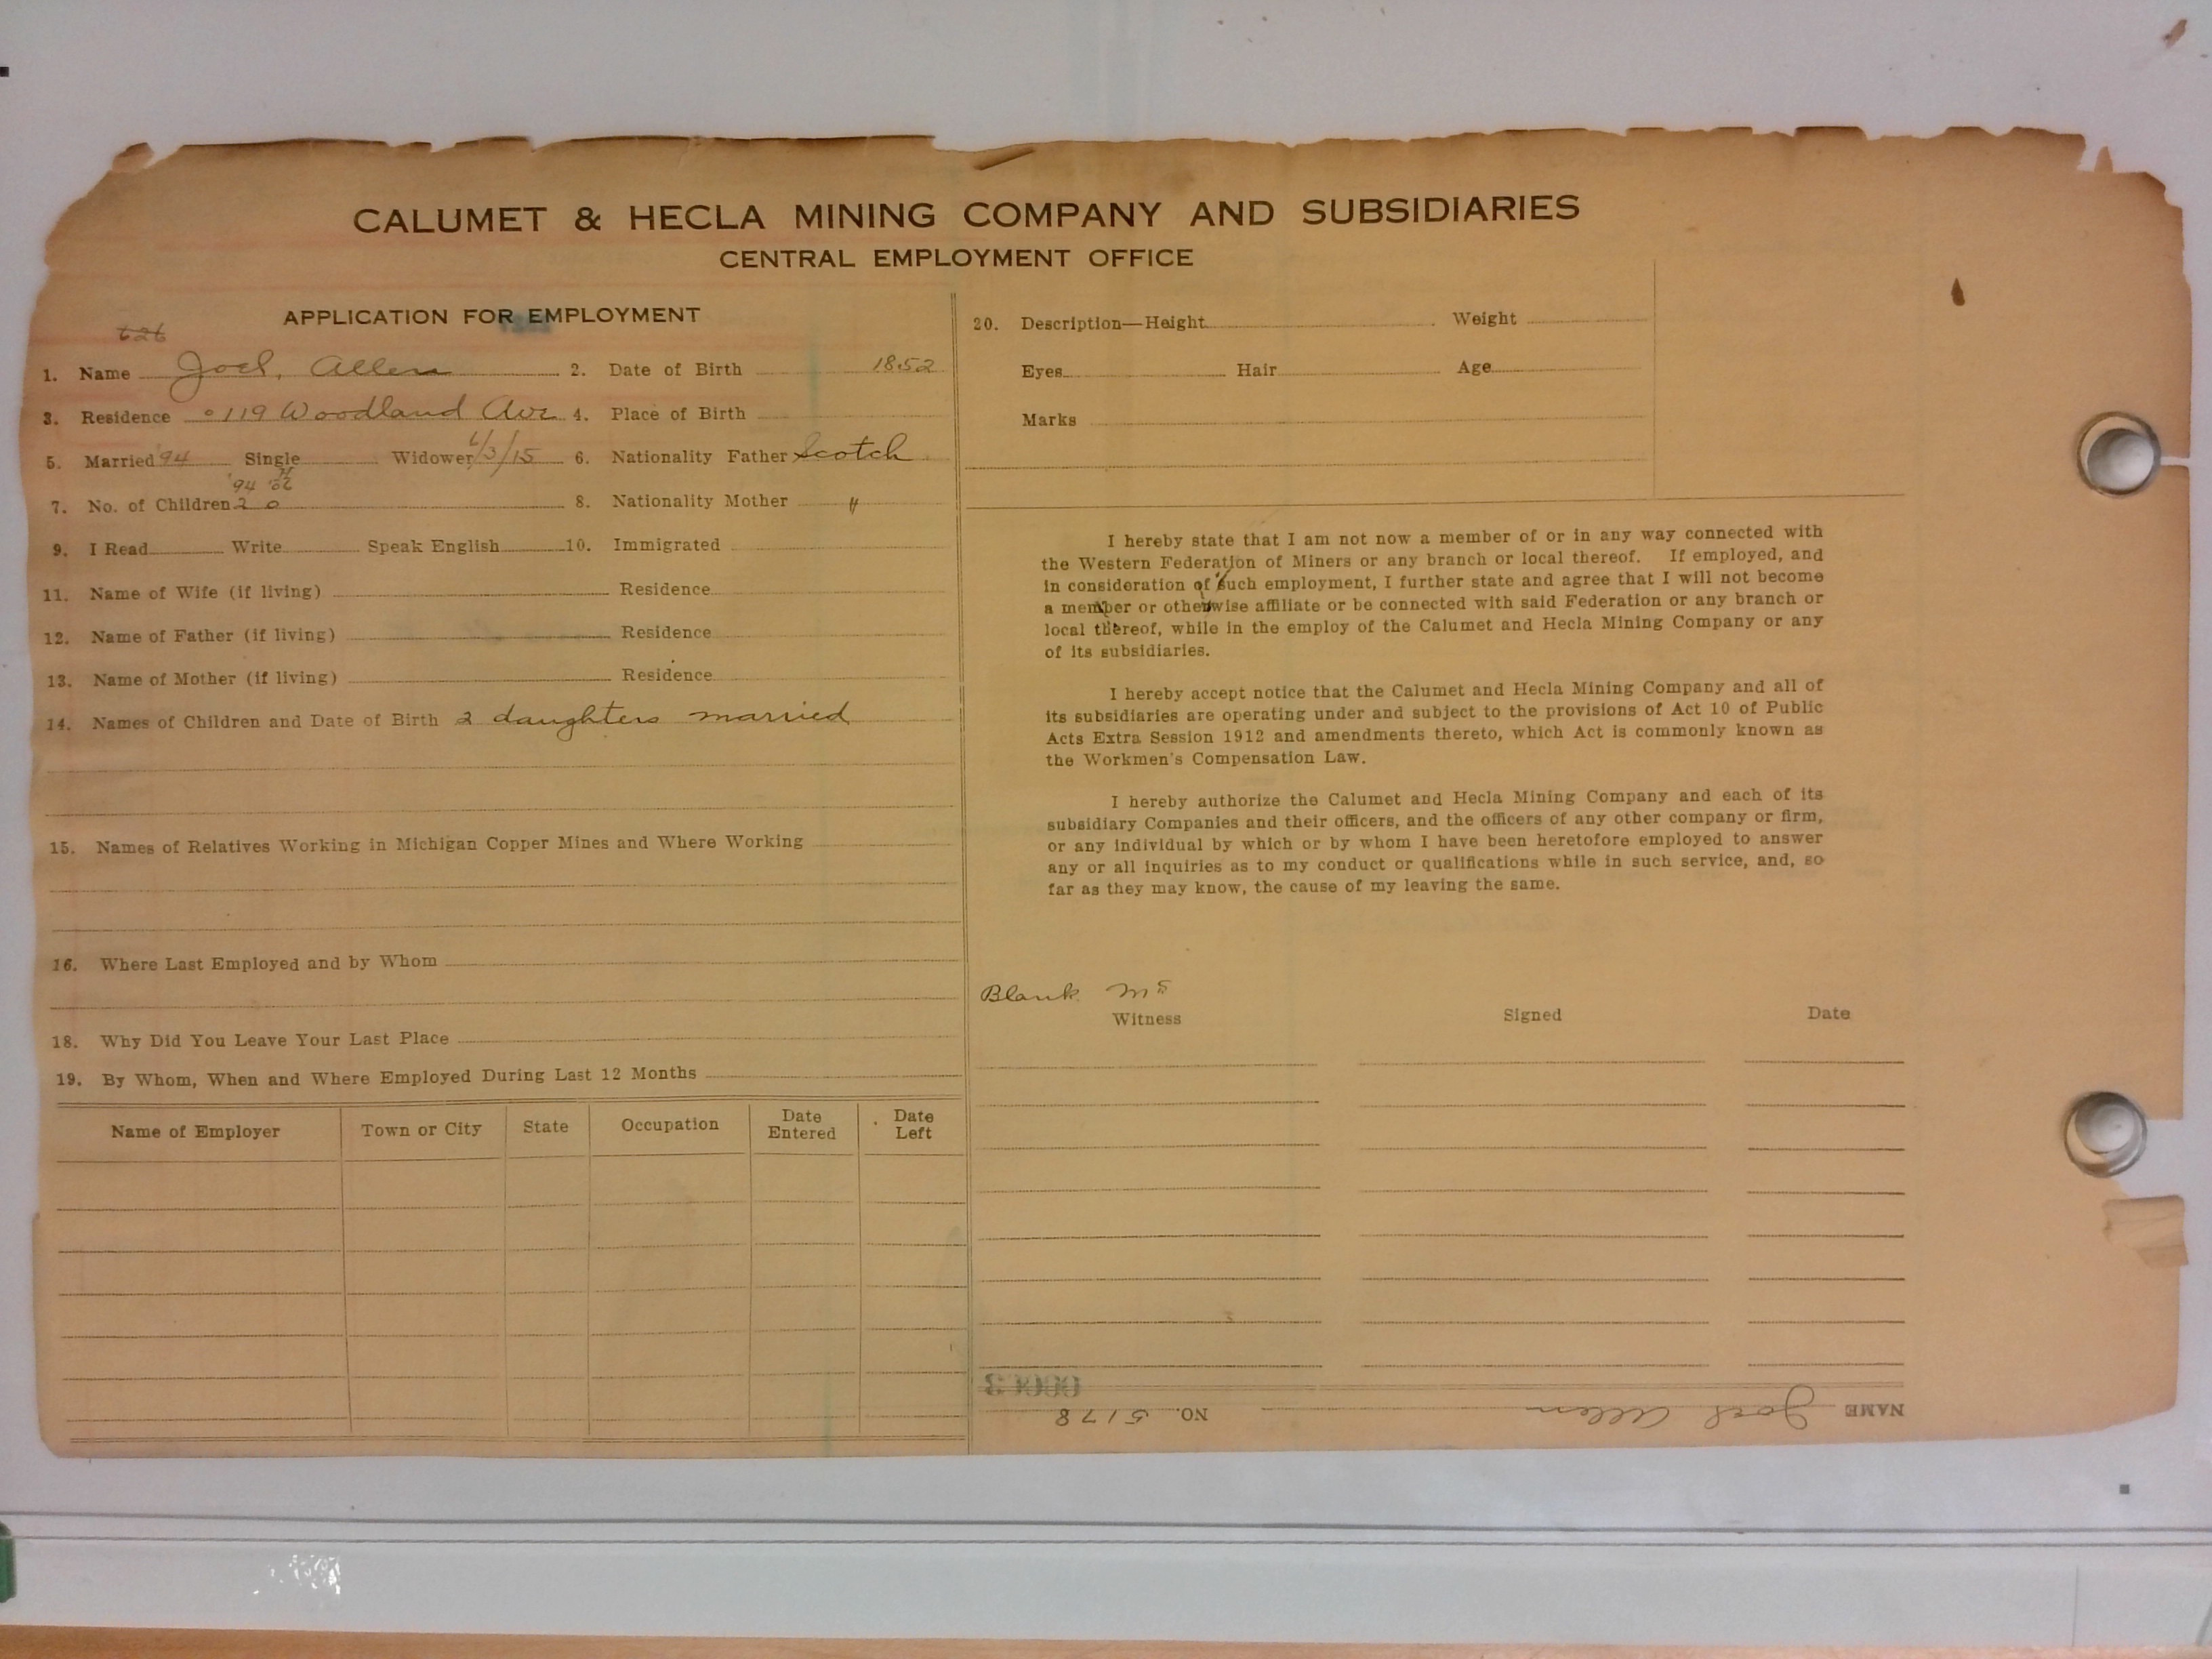 CALUMET & HECLA MINING COMPANY AND SUBSIDIARIES
CENTRAL EMPLOYMENT OFFICE
APPLICATION FOR EMPLOYMENT
626
1. Name Joel, Allen 2. Date of Birth 1852
3. Residence 119 Woodland Ave 4. Place of Birth
5. Married '94 Single Widower 6/3/15 6. Nationality Father Scotch
'94
7. No. of Children 2 0 8. Nationality Mother "
9. I Read Write Speak English 10. Immigrated
11. Name of Wife (if living) Residence
12. Name of Father (if living) Residence
13. Name of Mother (if living) Residence
14. Names of Children and Date of Birth 2 daughters married
15. Names of Relatives Working in Michigan Copper Mines and Where Working
16. Where Last Employed and by Whom
18. Why Did You Leave Your Last Place
19. By Whom, When and Where Employed During Last 12 Months
Name of Employer Town or City State Occupation Date Entered Date Left
20. Description—Height Weight
Eyes Hair Age
Marks
I hereby state that I am not now a member of or in any way connected with
the Western Federation of Miners or any branch or local thereof. If employed, and
in consideration of such employment, I further state and agree that I will not become
a member or otherwise affiliate or be connected with said Federation or any branch or
local thereof, while in the employ of the Calumet and Hecla Mining Company or any
of its subsidiaries.
I hereby accept notice that the Calumet and Hecla Mining Company and all of
its subsidiaries are operating under and subject to the provisions of Act 10 of Public
Acts Extra Session 1912 and amendments thereto, which Act is commonly known as
the Workmen's Compensation Law.
I hereby authorize the Calumet and Hecla Mining Company and each of its
subsidiary Companies and their officers, and the officers of any other company or firm,
or any individual by which or by whom I have been heretofore employed to answer
any or all inquiries as to my conduct or qualifications while in such service, and, so
far as they may know, the cause of my leaving the same.
Blank
Witness Signed Date
NAME Joel Allen NO. 5178